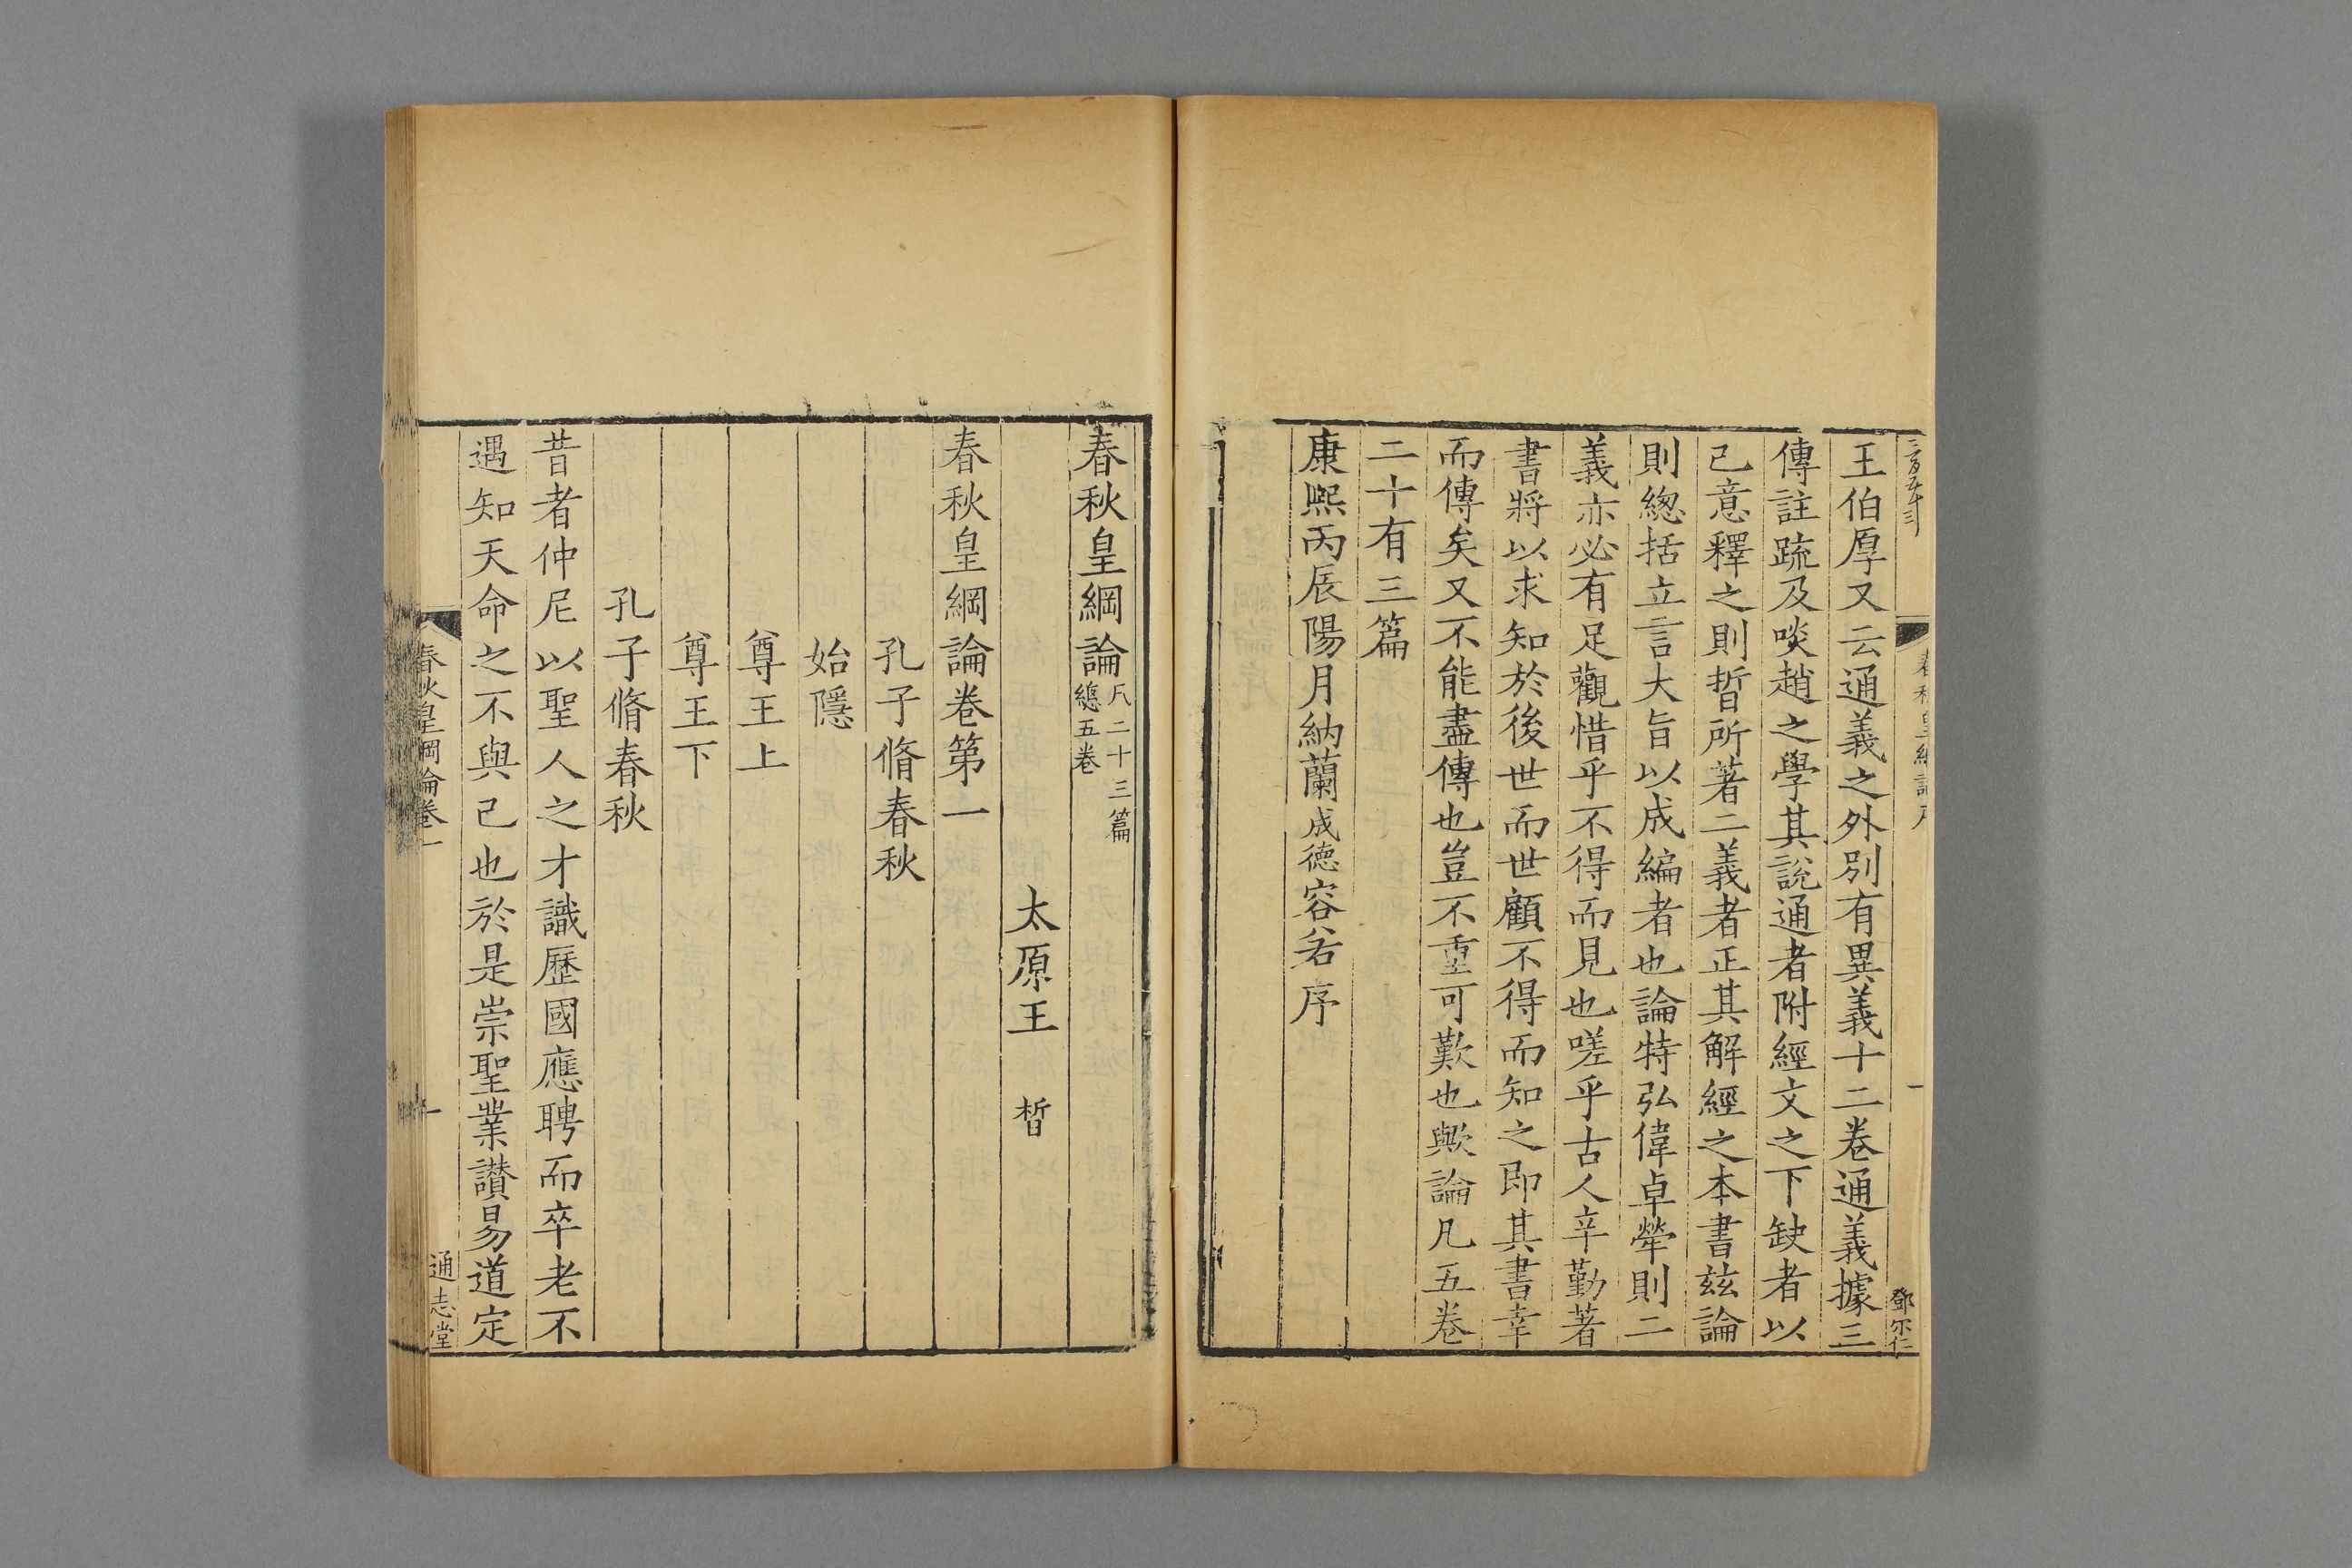 王伯厚又云通義之外別有異義十二卷通義據三
傳註疏及啖趙之學其說通者附經文之下缺者以
己意釋之則晳所著二義者正其解經之本書玆論
則緫括立言大旨以成編者也論特弘偉卓犖則二
義亦必有足觀惜乎不得而見也嗟乎古人辛勤著
書將以求知於後世而世顧不得而知之即其書幸
而傳矣又不能盡傳也豈不重可歎也歟論凡五卷
二十有三篇
康熙丙辰陽月納蘭成德容若序
鄧尔仁
春秋皇綱論凡二十三篇
總五卷
太原王 晳
春秋皇綱論卷第一
孔子脩春秋
始隱
尊王上
尊王下
孔子脩春秋
昔者仲尼以聖人之才識歷國應聘而卒老不
遇知天命之不與己也於是崇聖業讃易道定
春秋皇綱論卷一
一
通志堂